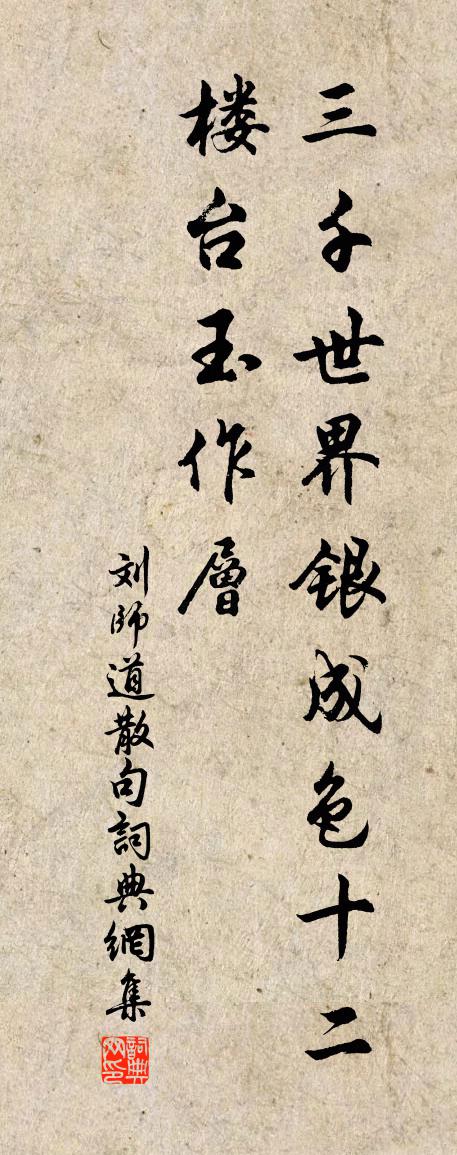 三千世界银成色十二
楼台玉作層
刘師道散句詞典網集
詞典网印